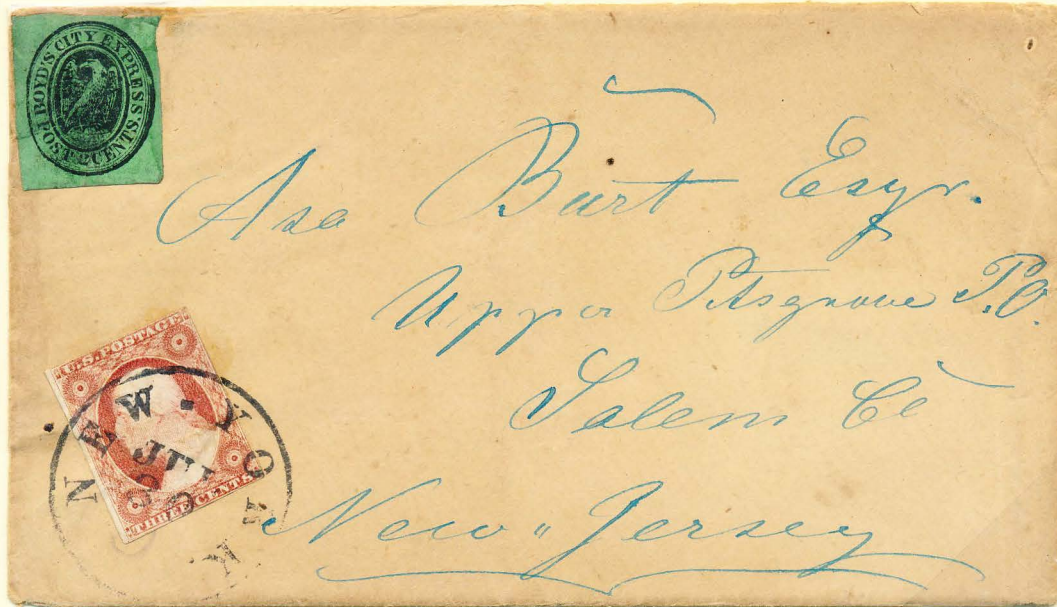 BOYD'S CITY EXPRESS.
POST 2 CENTS.
Asa Burt Esqr.
Upper Pitsgrove P.O.
Salem Co
New Jersey
U.S. POSTAGE
THREE CENTS
NEW-YORK